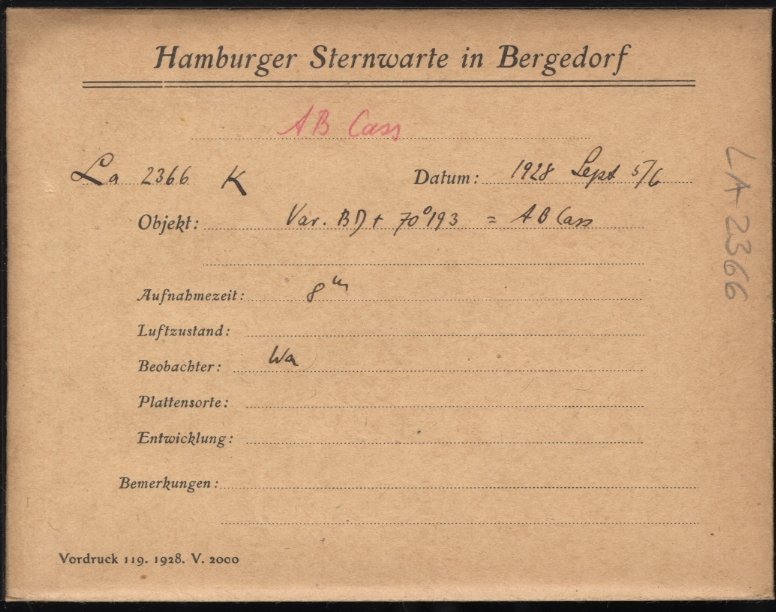 Hamburger Sternwarte in Bergedorf
AB Cass
La 2366 K Datum: 1928 Sept 5/6
Objekt: Var. BD + 70°193 = AB Cass
Aufnahmezeit: 8m
Luftzustand:
Beobachter: Wa
Plattensorte:
Entwicklung:
Bemerkungen:
Vordruck 119. 1928. V. 2000
LA 2366